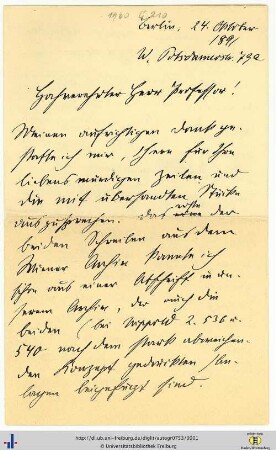 1960 G 210
Berlin, 24. Oktober
1891
W. Potsdamerstr. 79a
Hochverehrter Herr Professor!
Meinen aufrichtigen Dank ge-
statte ich mir, Ihnen für Ihre
liebenswürdigen Zeilen und
die mir übersandten Stücke
auszusprechen. Das erste der
beiden Schreiben aus dem
Wiener Archiv kannte ich
schon aus einer Abschrift in un-
serem Archiv, der auch die
beiden (bei 2. 536 u.
540 nach dem abweichen-
den Konzept gedruckten) An-
lagen beigefügt sind.
http://dl.ub.uni-freiburg.de/diglit/autogr0753/0001
© Universitätsbibliothek Freiburg